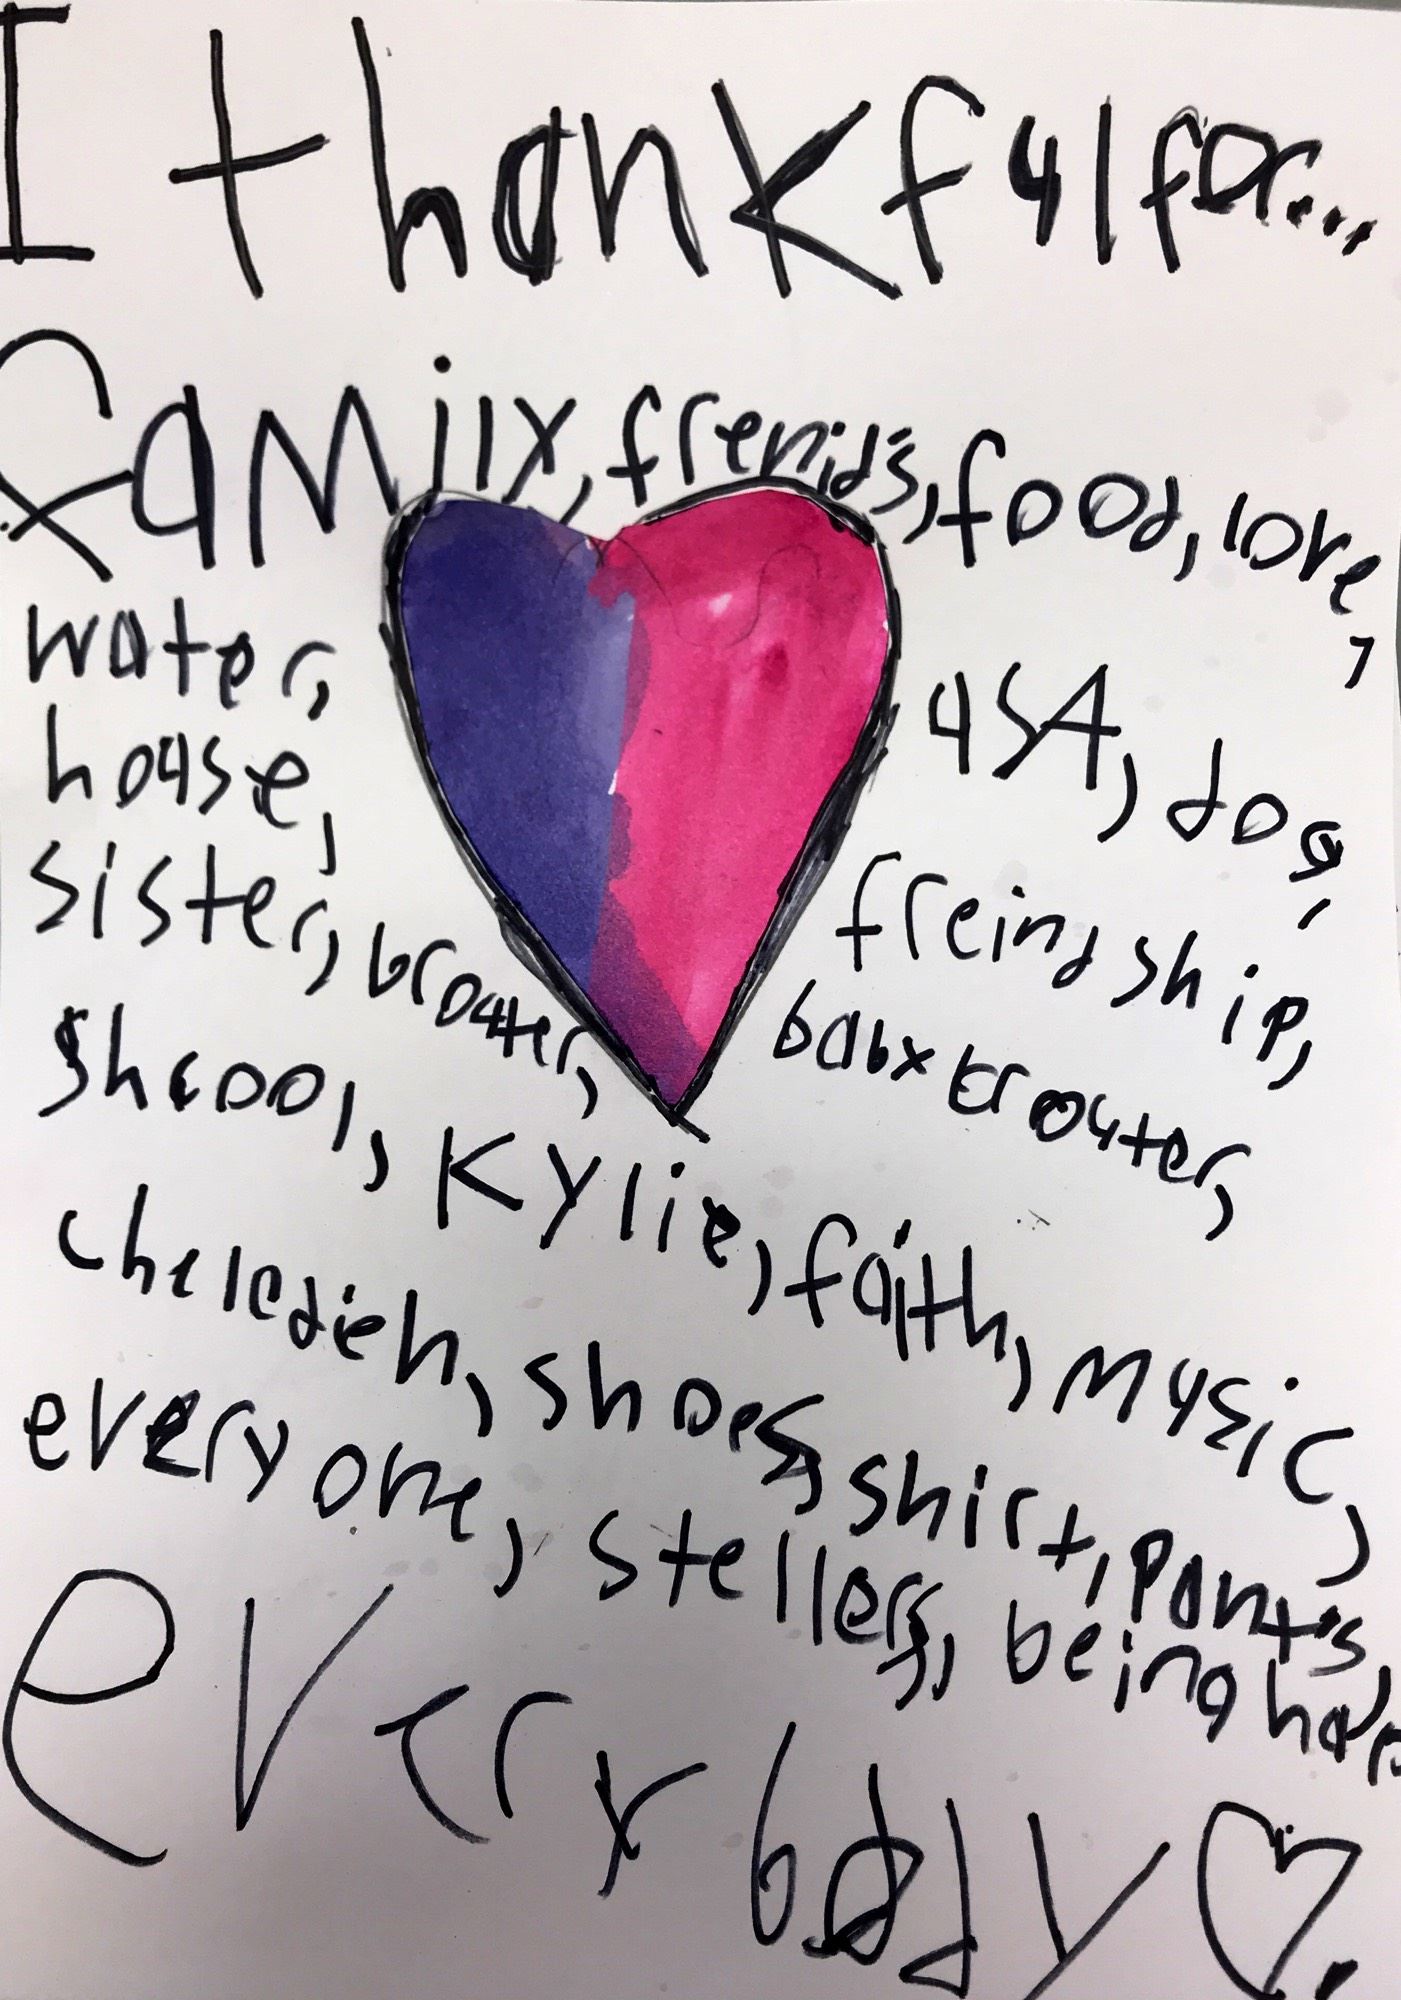 I thankful for...
familY, frenids, food, love,
water,
USA, dog,
house,
sister, brouter,
freindship,
babY brouter,
shcool, Kylie, faith, music,
cheledieh, shoes, shirt, pants,
every one, stellers, being hap
everybody ♡.